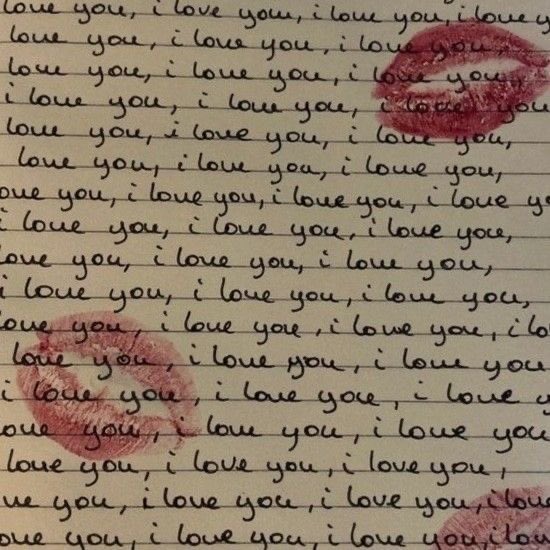 love you, i love you, i love you, i love y
love you, i love you, i love you,
love you, i love you, i love you,
i love you, i love you, i love you
love you, i love you, i love you,
love you, i love you, i love you,
ove you, i love you, i love you, i love yo
i love you, i love you, i love you,
love you, i love you, i love you,
i love you, i love you, i love you,
love you, i love you, i love you, i lo
love you, i love you, i love you
i love you, i love you, i love y
ove you, i love you, i love you
love you, i love you, i love you,
ve you, i love you, i love you, i love
ove you, i love you, i love you, i lov